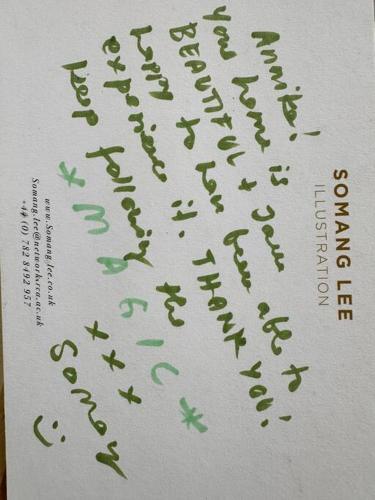 SOMANG LEE
ILLUSTRATION
Annika!
your home is
BEAUTIFUL + I am
happy to have been able to
experience it. THANK YOU!
keep following the
* MAGIC *
x x x
Somang
www.Somang-lee.co.uk
Somang.lee@network.rca.ac.uk
+44 (0) 782 8492 957